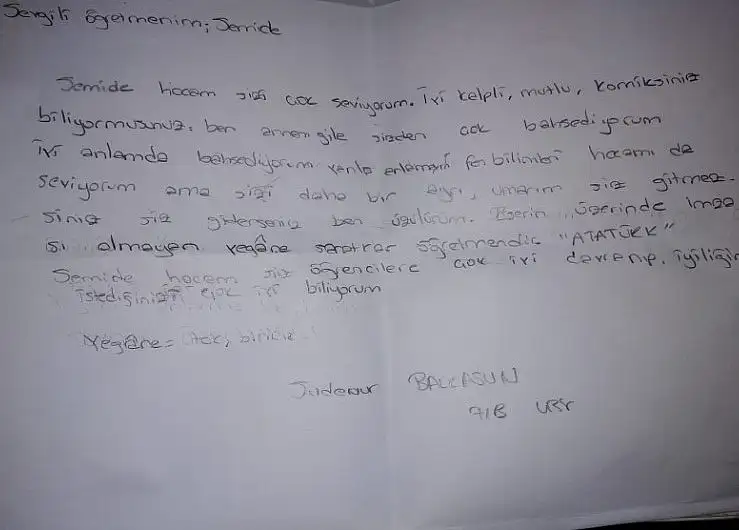 Sevgili öğretmenim; Semide
Semide hocam sizi çok seviyorum. İyi kelpli, mutlu, komiksiniz
biliyormusunuz, ben annemgile sizden çok bahsediyorum
iyi anlamda bahsediyorum yanlış anlamayın fen bilimleri hocamı da
seviyorum ama sizi daha bir ayrı, umarım siz gitmez-
siniz siz giderseniz ben üzülürüm. Eserin üzerinde imza
sı olmayan yegâne sanatkar öğretmendir "ATATÜRK"
Semide hocam siz öğrencilere çok iyi davranıp, iyiliğin
istediğinizi çok iyi biliyorum
Yegâne = Tek, biricik
BALLASUN
7/B